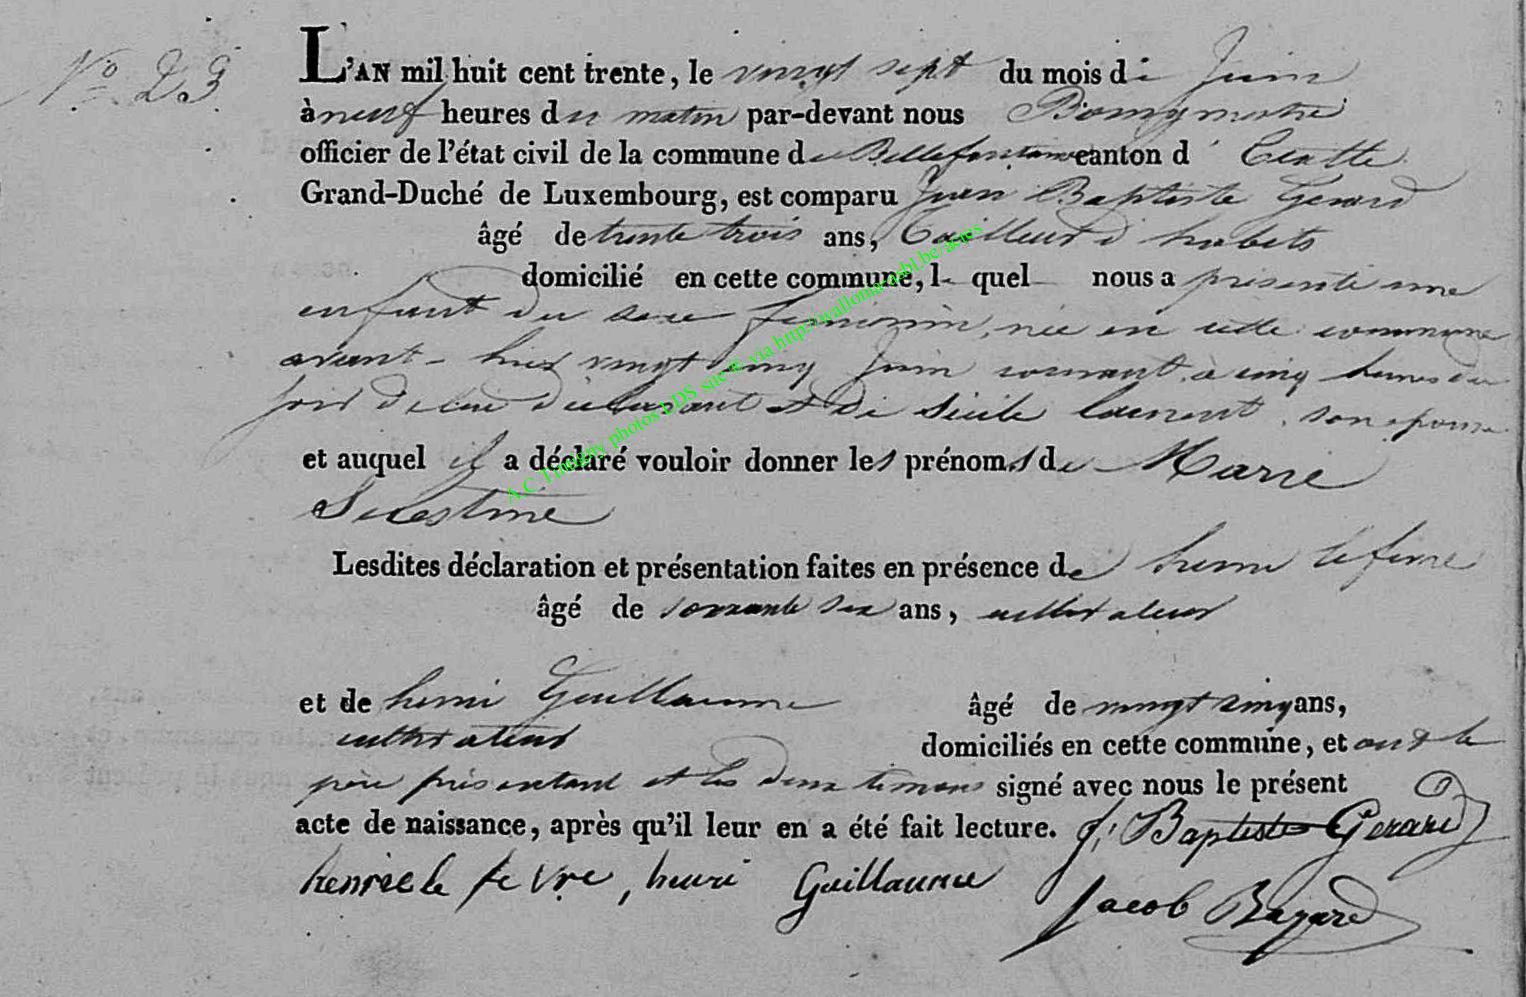 N° 23
L'AN mil huit cent trente, le vingt sept du mois de Juin
à neuf heures du matin par-devant nous Bourgmestre
officier de l'état civil de la commune de Bellefontaine canton d'Etalle
Grand-Duché de Luxembourg, est comparu Jean Baptiste Gerard
âgé de trente trois ans, Tailleur d'habits
domicilié en cette commune, le quel nous a présenté une
enfant du sexe feminin, née en cette commune
avant-hier vingt cinq Juin courant à cinq heures du
soir de lui declarant et de Sicile laurent, son epouse
et auquel il a déclaré vouloir donner les prénoms de Marie
Lesdites déclaration et présentation faites en présence de henri lefevre
âgé de soixante six ans, cultivateur
et de henri Guillaume âgé de vingt cinq ans,
cultivateur domiciliés en cette commune, et ont le
père présentant et les deux temoins signé avec nous le présent
acte de naissance, après qu'il leur en a été fait lecture. J: Baptiste Gerard
henri le fe vre, henri Guillaume
Jacob Bazard
A.C Timigny photos LDS sur © via http://walloma-asbl.be/actes